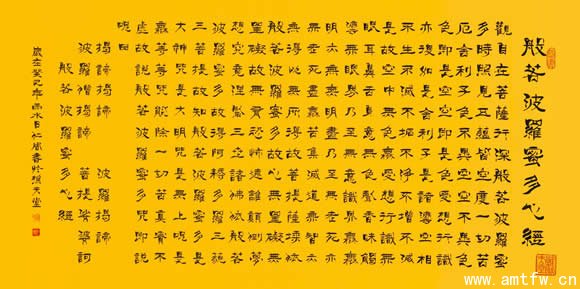 般若波羅蜜多心經
觀自在菩薩行深般若波羅蜜
多時照見五蘊皆空度一切苦
厄舍利子色不異空空不異色
色即是空空即是色受想行識
亦復如是舍利子是諸灋空相
不生不滅不垢不淨不增不減
是故空中無色無受想行識無
眼耳鼻舌身意無色聲香味觸
灋無眼界乃至無意識界無無
明亦無無明盡乃至無老死亦
無老死盡無苦集滅道無智亦
無得以無所得故菩提薩埵依
般若波羅蜜多故心無罣礙無
罣礙故無有恐怖遠離顛倒夢
想究竟涅槃三世諸佛依般若
波羅蜜多故得阿耨多羅三藐
三菩提故知般若波羅蜜多是
大神咒是大明咒是無上咒是
無等等咒能除一切苦真實不
虛故說般若波羅蜜多咒即說
呪曰
揭諦揭諦 波羅揭諦
波羅僧揭諦 菩提娑婆訶
般若波羅蜜多心經
歲在癸巳年雨水日
www.amtfw.cn